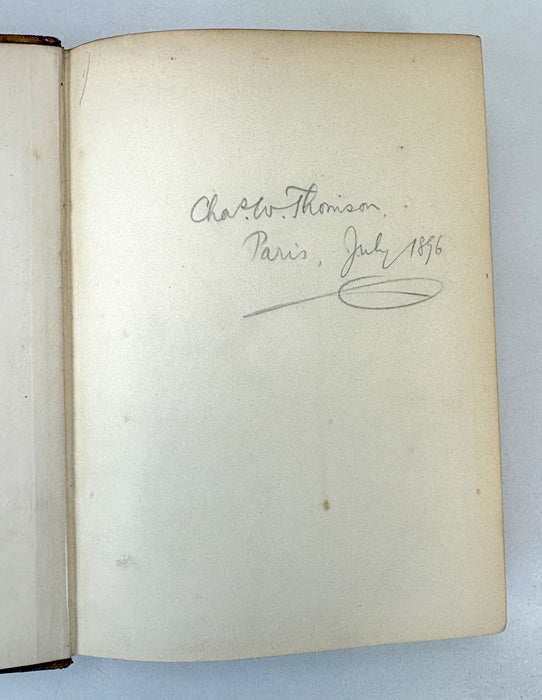 Chas. W. Thomson,
Paris, July 1896